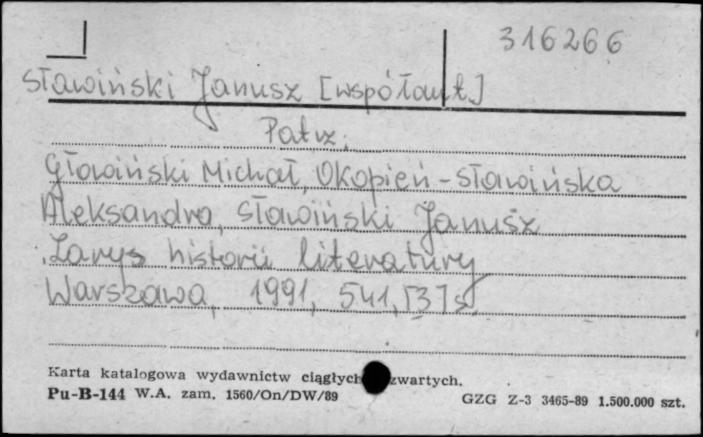 316266
Sławiński Janusz [współaut.]
Patrz:
Głowiński Michał, Okopień-Sławińska
Aleksandra, Sławiński Janusz
Zarys historii literatury
Warszawa, 1991, 541, [3] s.
Karta katalogowa wydawnictw ciągłych zwartych.
Pu-B-144 W.A. zam. 1560/On/DW/89
GZG Z-3 3465-89 1.500.000 szt.